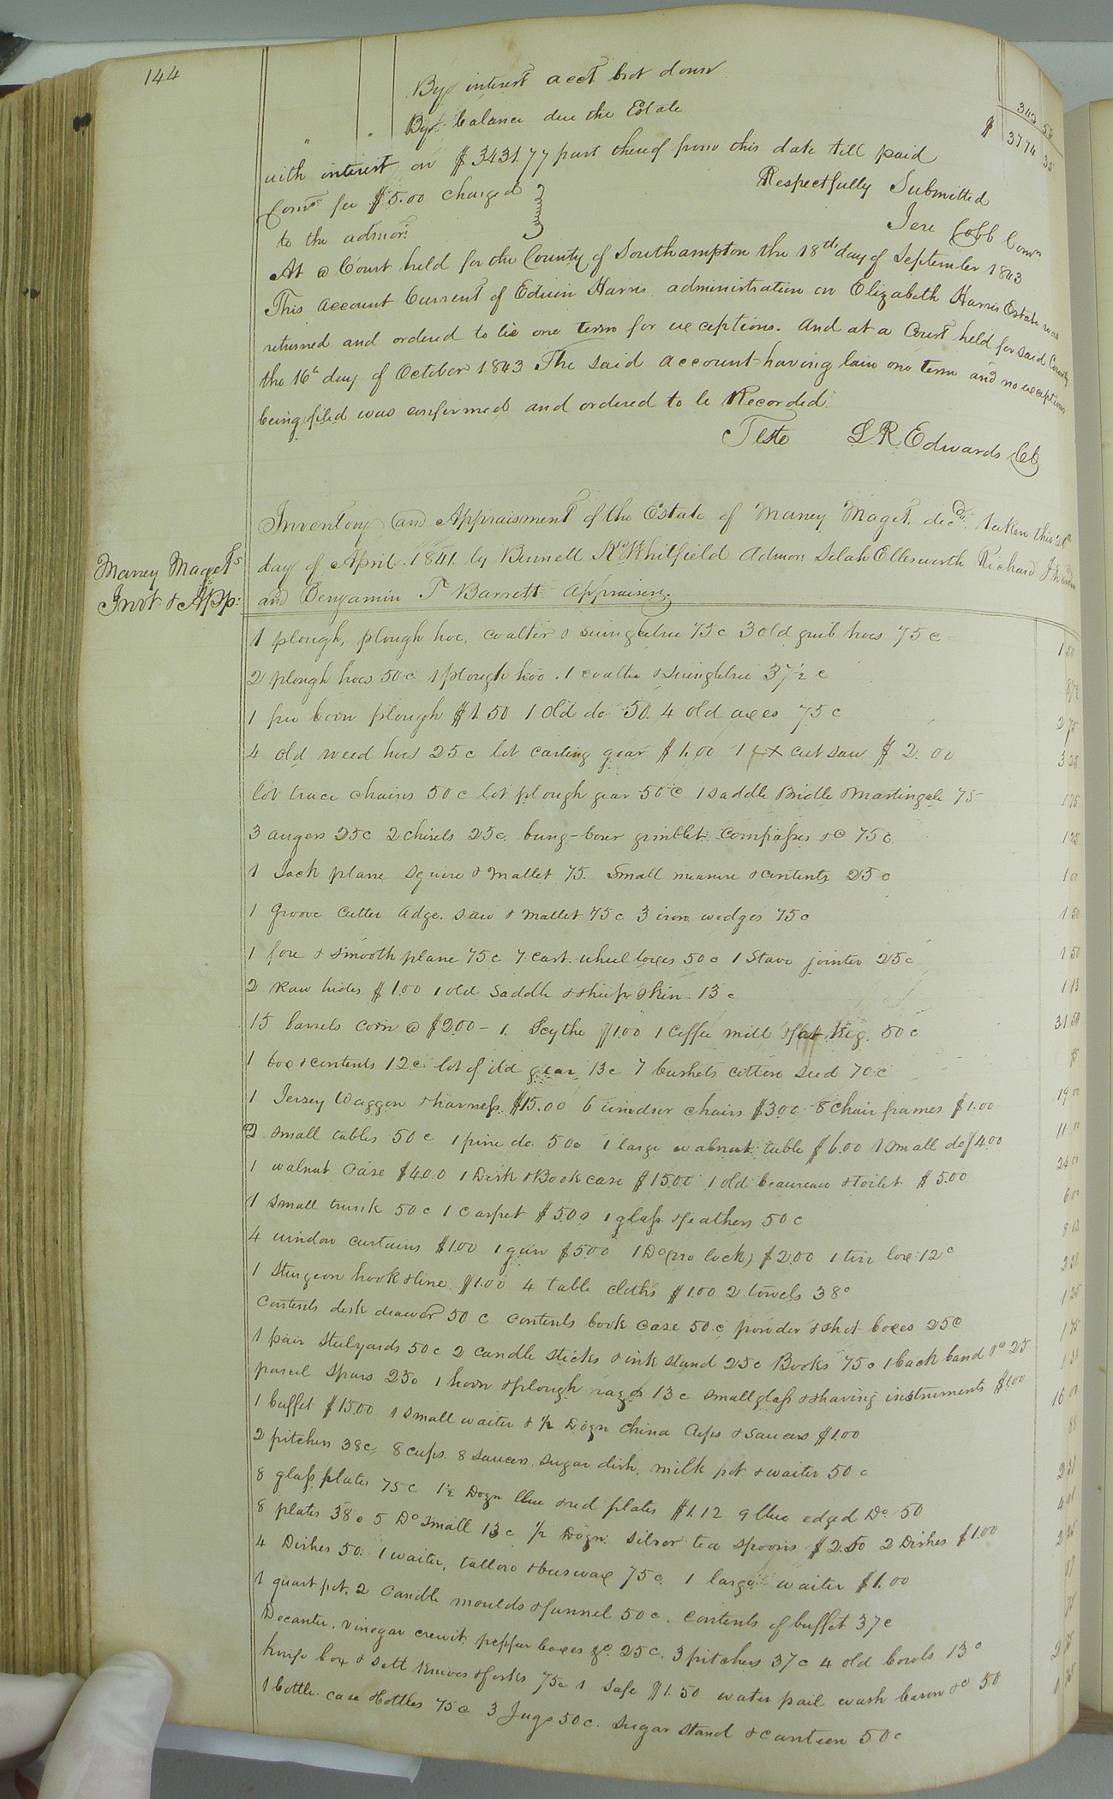 144
By interest acct brot down 343 58
" " By balance due the Estate $ 3774 35
with interest on $3431.77 part thereof from this date till paid
Respectfully Submitted
Coms fee $5.00 charged
to the admor.
Jere Cobb Comr
At a Court held for the County of Southampton the 18th day of September 1843
This account Current of Edwin Harris administration on Elizabeth Harris Estate was
returned and ordered to lie one term for exceptions. And at a Court held for said County
the 16th day of October 1843 The said account having lain one term and no exceptions
being filed was confirmed and ordered to be Recorded.
Teste L R Edwards CC
Maney Magets
Invt & App:
Inventory and Appraisment of the Estate of Maney Maget decd. taken this
day of April 1841 by Bennett Whitfield Admor Selah Ellesworth Richard J
and Benjamin T Barrett Appraisers.
1 plough, plough hoe, coalter & swingletree 75c 3 old grub hoes 75c 1 50
2 plough hoes 50c 1 plough hoe. 1 coalter & swingletree 37½ c 87½
1 free born plough $1.50 1 old do 50. 4 old axes 75c 2 75
4 old weed hoes 25c lot carting gear $1.00 1 + cut saw $2.00 3 25
lot trace chains 50c lot plough gear 50c 1 Saddle Bridle & Martingale 75 1 75
3 augers 25c 2 chisels 25c bung-borer gimblet Compasses &c 75c 1 25
1 Jack plane square & mallet 75. Small measure & contents 25c 1 00
1 Groove Cutter Adge. Saw & Mallet 75c 3 iron wedges 75c 1 50
1 fore & smooth plane 75c 7 cart wheel boxes 50c 1 Stave jointer 25c 1 50
2 Raw hides $1.00 1 old Saddle & sheep skin 13c 1 13
15 barrels corn @ $2.00 - 1 Scythe $1.00 1 Coffee mill & 50c 31 50
1 box & contents 12c lot of old gear 13c 7 bushels cotton seed 70c 95
1 Jersey Waggon & harness $15.00 6 windsor chairs $3.00 8 chair frames $1.00 19 00
2 small tables 50c 1 pine do. 50c 1 large walnut table $6.00 1 small do $4.00 11 00
1 walnut Case $4.00 1 Desk & Book case $15.00 1 old beaureau & toilet $5.00 24 00
1 small trunk 50c 1 Carpet $5.00 1 glass & feathers 50c 6 00
4 window curtains $1.00 1 gun $5.00 1 Do (no lock) $2.00 1 tin box 12c 8 12
1 Sturgeon hook & line $1.00 4 table cloths $1.00 2 towels 38c
Contents desk drawer 50c contents book case 50c powder & shot boxes 25c 1 25
1 pair Steelyards 50c 2 Candle sticks & ink stand 25c Books 75c 1 back band &c 25 1 75
parcel Spurs 25c 1 horn & plough rags 13c small glass & shaving instruments $1.00
1 buffet $15.00 1 small waiter & ½ Dozn China Cups & Saucers $1.00 16 00
2 pitchers 38c, 8 cups. 8 Saucers. sugar dish, milk pot & waiter 50c 88
8 glass plates 75c 1½ Dozn blue & red plates $1.12 9 blue edged Do 50
8 plates 38c 5 Do small 13c ½ Dozn. Silver tea Spoons $2.50 2 Dishes $1.00
4 Dishes 50. 1 waiter, tallow & beeswax 75c. 1 large waiter $1.00
1 quart pot. 2 Candle moulds & funnel 50c. contents of buffet 37c
Decanter, vinegar crewit pepper boxes &c. 25c. 3 pitchers 37c 4 old bowls 13c
knife box & Sett knives & forks 75c 1 Safe $1.50 water pail wash basin &c 50
1 bottle case & bottles 75c 3 Jugs 50c. Sugar stand & canteen 50c